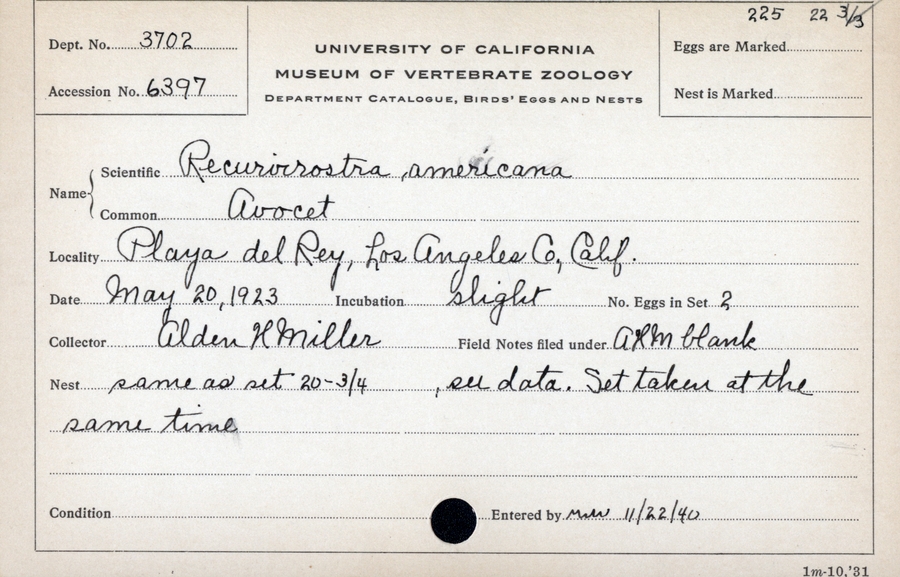 225 22 3/3
Dept. No. 3702
UNIVERSITY OF CALIFORNIA
Eggs are Marked
MUSEUM OF VERTEBRATE ZOOLOGY
Accession No. 6397
Nest is Marked
DEPARTMENT CATALOGUE, BIRDS' EGGS AND NESTS
Name { Scientific Recurvirostra americana
Common Avocet
Locality Playa del Rey, Los Angeles Co, Calif.
Date May 20, 1923 Incubation slight No. Eggs in Set 2
Collector Alden H Miller Field Notes filed under AHM blank
Nest same as set 20-3/4 , see data. Set taken at the
same time
Condition Entered by 11/22/40
1m-10,'31